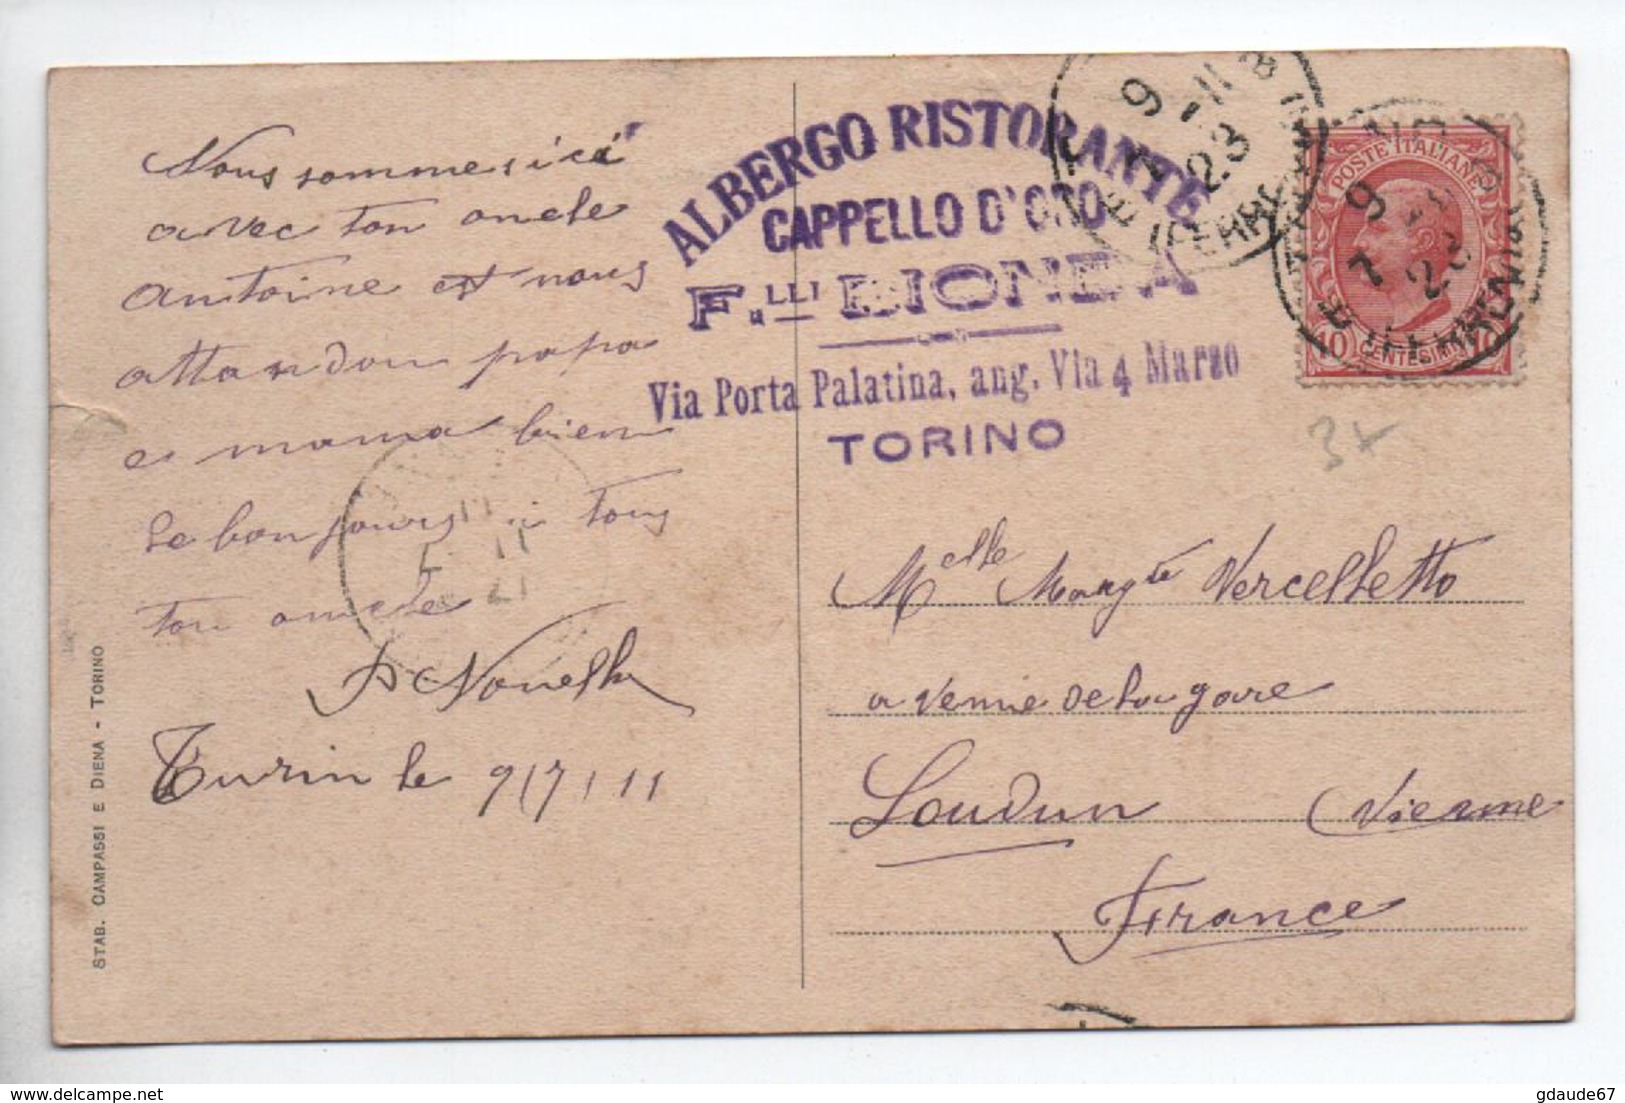 Nous sommes ici
avec ton oncle
antoine et nous
attandon papa
e mama bien
le bonjours a tous
ton oncle
P Novella
Turin le 9/7/11
STAB. CAMPASSI E DIENA - TORINO
ALBERGO RISTORANTE
CAPPELLO D'ORO
F.LLI BIONDA
Via Porta Palatina, ang. Via 4 Marzo
TORINO
9 7-11 8
23
POSTE ITALIANE
10 CENTESIMI 10
3x
Melle Margte Vercelletto
avenue de la gare
Loudun Vienne
France
gdaude67